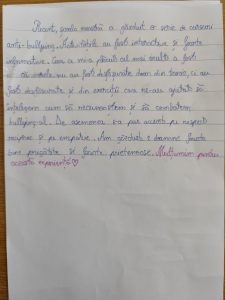 Recent, școala noastră a găzduit o serie de ateliere
anti-bullying. Activitățile au fost interactive și foarte
informative. Ceea ce mi-a plăcut cel mai mult a fost
că orele nu au fost desfășurate doar din teorie, ci au
fost desfășurate și din exerciții care ne-au ajutat să
înțelegem cum să recunoaștem și să combatem
bullying-ul. De asemenea s-a pus accent pe respect
reciproc și pe empatie. Am găzduit 2 doamne foarte
bine pregătite și foarte prietenoase. Mulțumim pentru
această experiență ♡